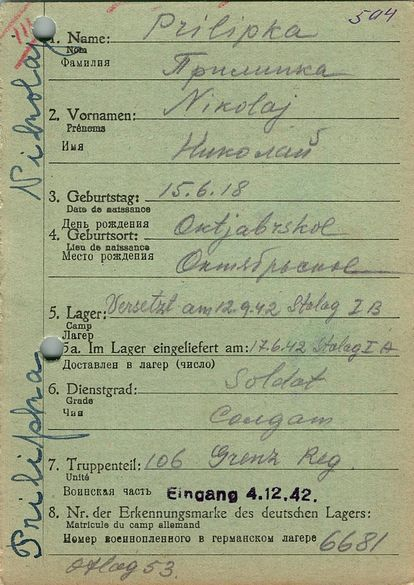 504
1. Name: Prilipka
Nom
Фамилия Прилипка
2. Vornamen: Nikolaj
Prénoms
Имя Николай
3. Geburtstag: 15.6.18
Date de naissance
День рождения
4. Geburtsort: Oktjabrskol
Lieu de naissance
Место рождения Октябрьское
5. Lager: Versetzt am 12.9.42 Stalag I B
Camp
Лагер
5a. Im Lager eingeliefert am: 17.6.42 Stalag I A
Доставлен в лагер (число)
6. Dienstgrad: Soldat
Grade
Чин Солдат
7. Truppenteil: 106 Grenz Reg.
Unité
Воинская часть Eingang 4.12.42.
8. Nr. der Erkennungsmarke des deutschen Lagers:
Matricule du camp allemand
Номер военнопленного в германском лагере 6681
Oflag 53.
Prilipka Nikolaj